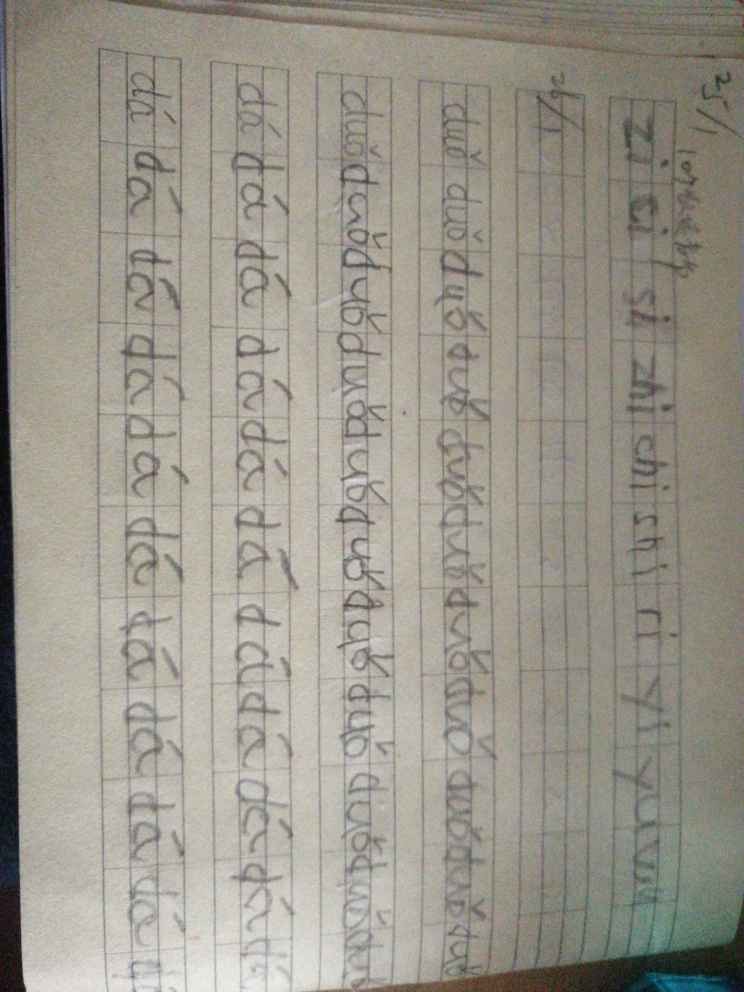 25/1
zi ci si zhi chi shi ri yi yu wu
26/1
duǒ duǒ duǒ duǒ duǒ duǒ duǒ duǒ duǒ duǒ duǒ
duǒ duǒ duǒ duǒ duǒ duǒ duǒ duǒ duǒ duǒ duǒ
dá dá dá dá dá dá dá dá dá dá dá
dá dá dá dá dá dá dá dá dá dá